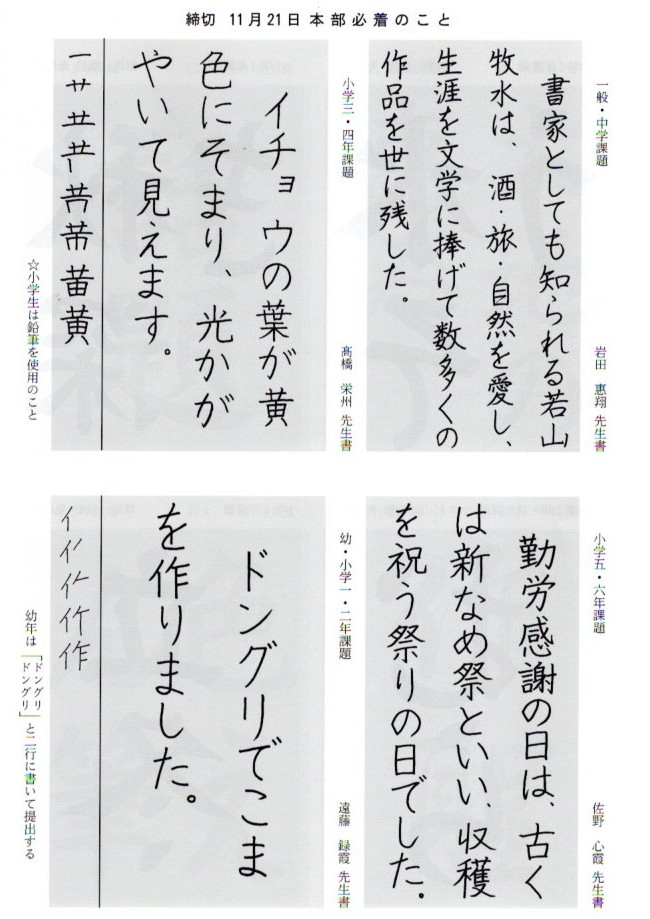 締切 11月21日本部必着のこと
一般・中学課題
岩田 惠翔 先生書
書家としても知られる若山
牧水は、酒・旅・自然を愛し、
生涯を文学に捧げて数多くの
作品を世に残した。
小学三・四年課題
髙橋 栄州 先生書
イチョウの葉が黄
色にそまり、光かが
やいて見えます。
一 サ
黄
☆小学生は鉛筆を使用のこと
小学五・六年課題
佐野 心霞 先生書
勤労感謝の日は、古く
は新なめ祭といい、収穫
を祝う祭りの日でした。
幼・小学一・二年課題
遠藤 録霞 先生書
ドングリでこま
を作りました。
イ 作
幼年は「ドングリ
ドングリ」と二行に書いて提出する